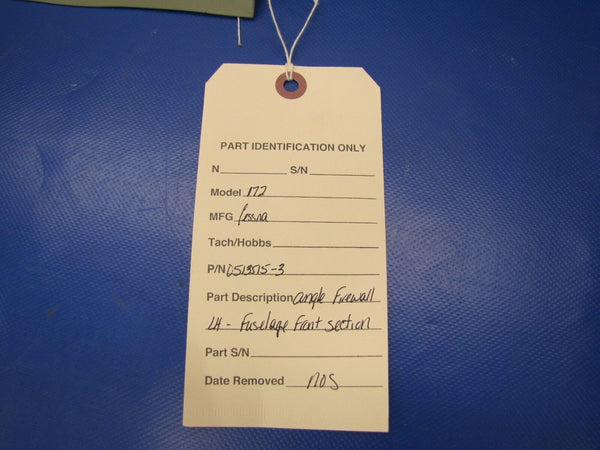 PART IDENTIFICATION ONLY
N S/N
Model 172
MFG Cessna
Tach/Hobbs
P/N 0513515-3
Part Description angle Firewall
LH - Fuselage Front section
Part S/N
Date Removed NOS